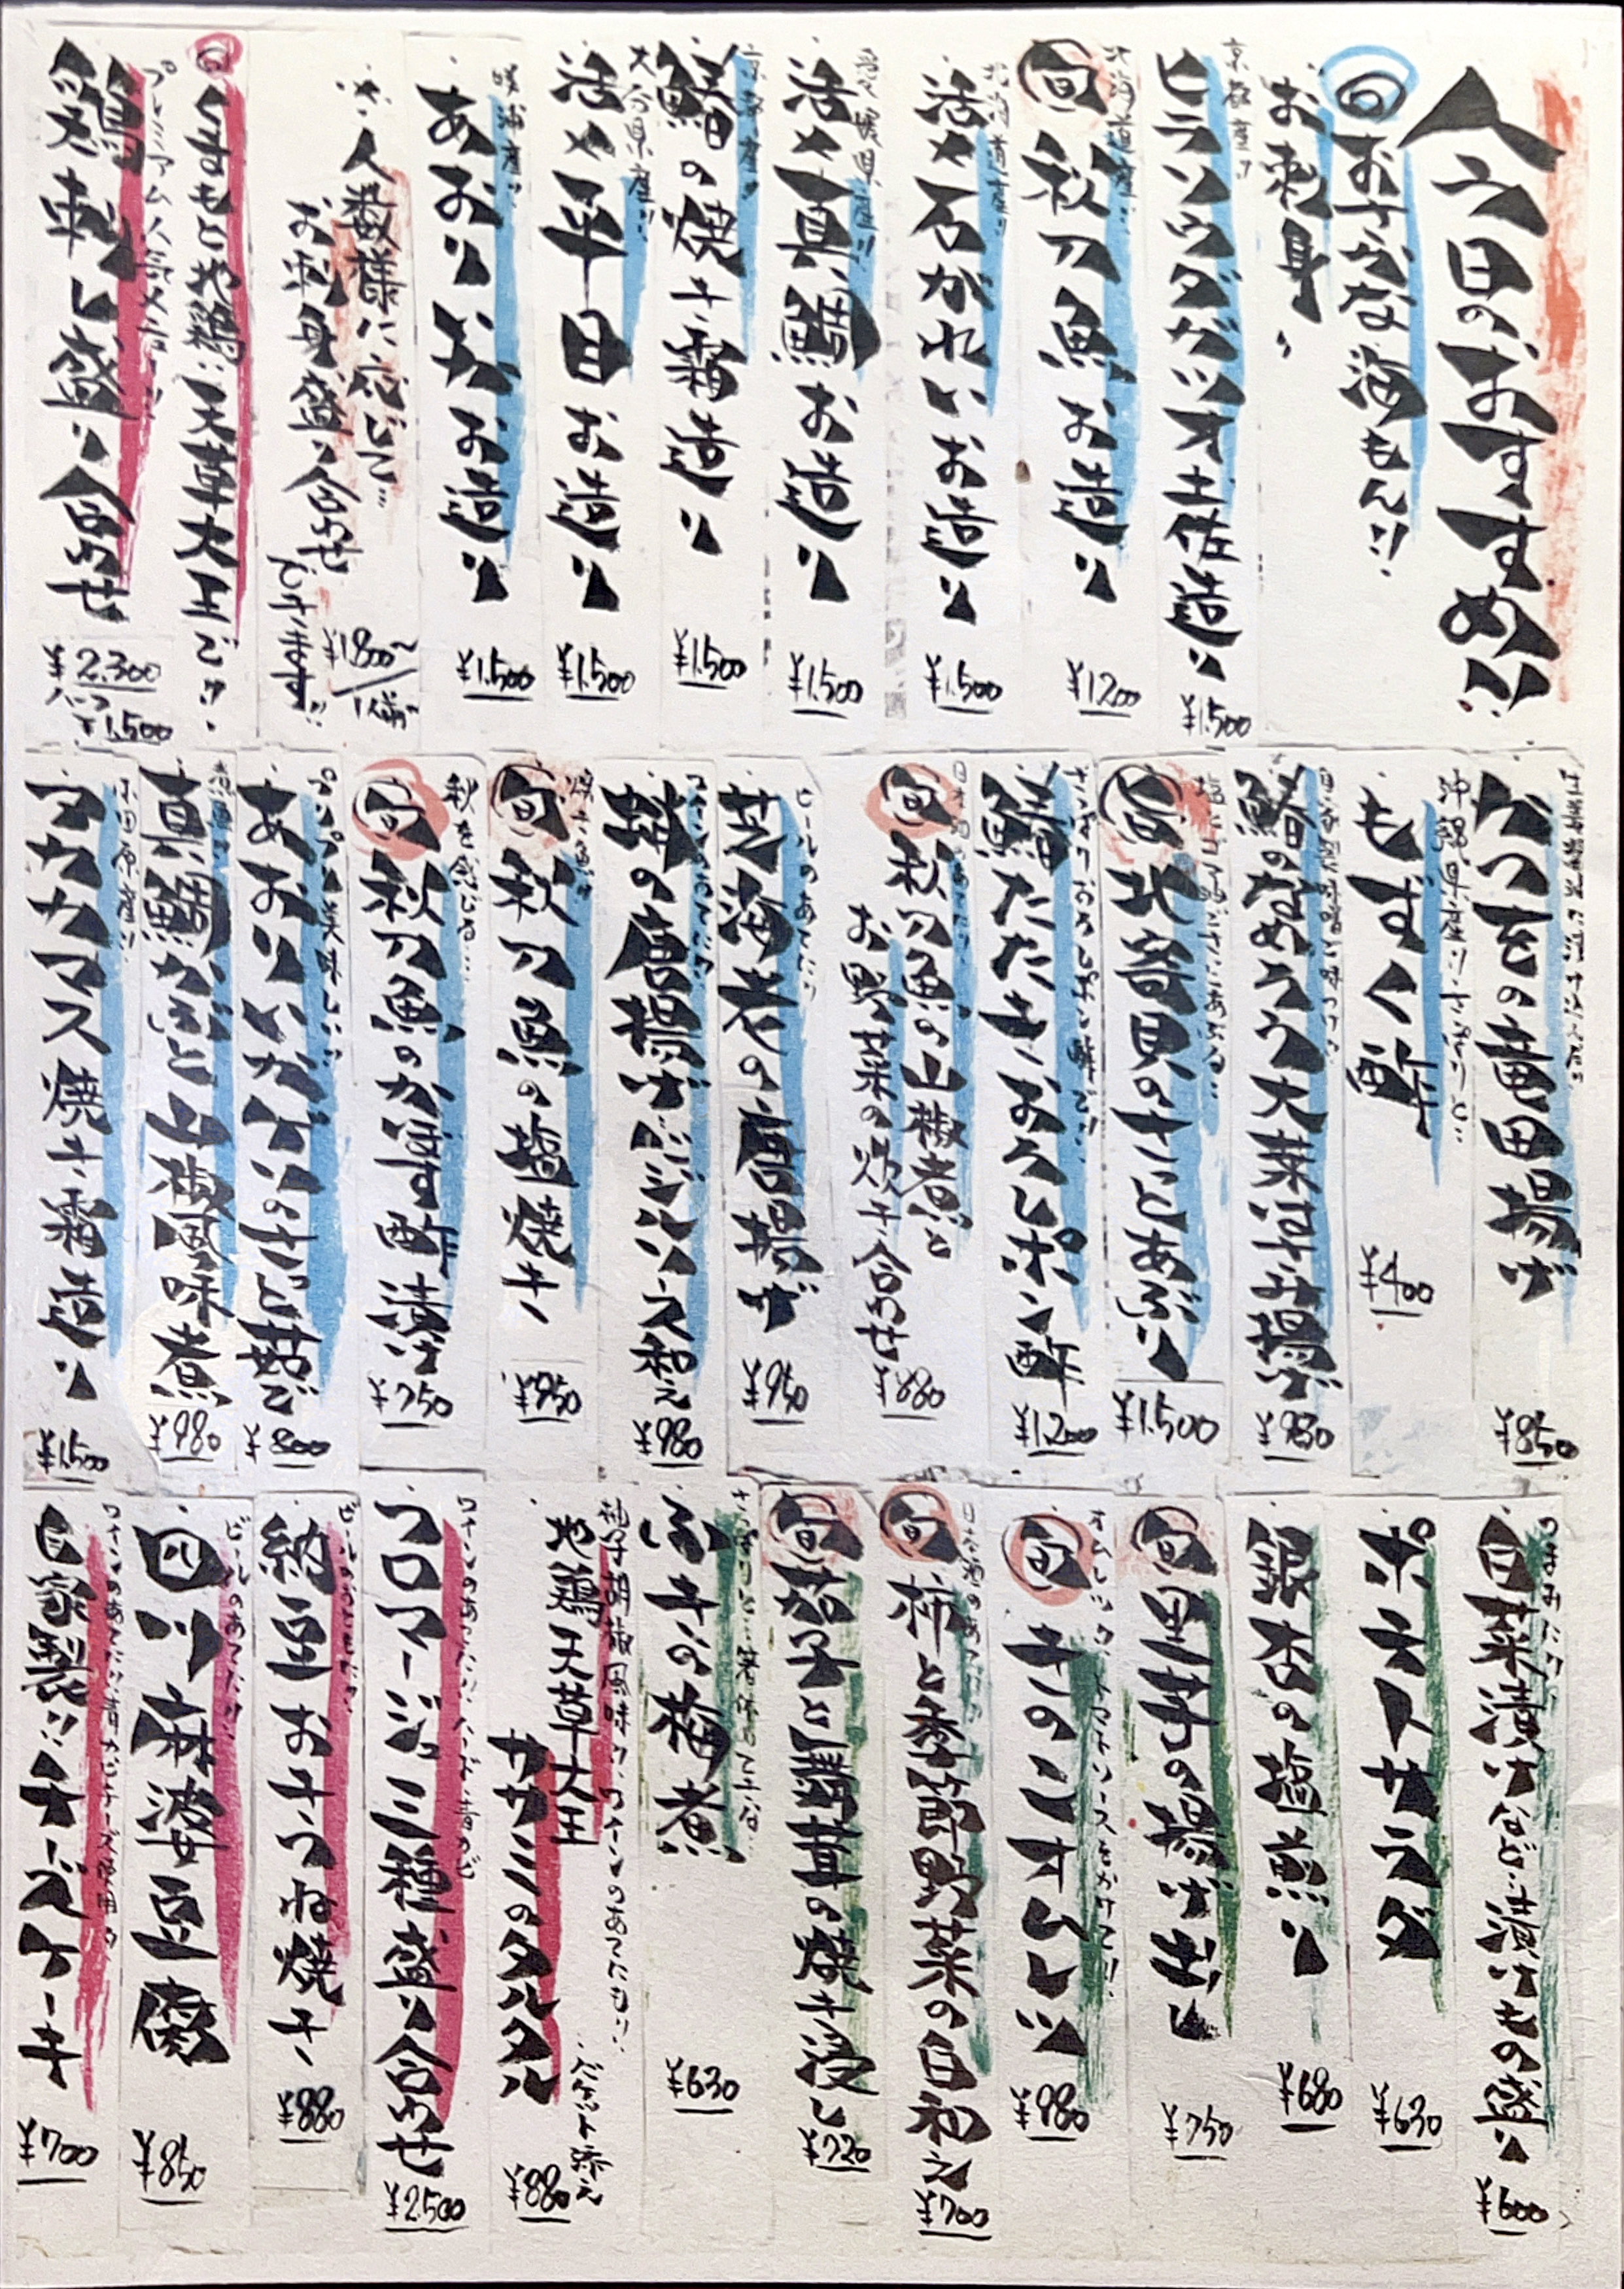 今日のおすすめ!!
おさかな海もん!!
お刺身
京都産!!
ヒラソウダガツオ土佐造り
¥1.500
北海道産!!
旬
秋刀魚お造り
¥1.200
北海道産!!
活〆石がれいお造り
¥1.500
愛媛県産!!
活〆真鯛お造り
¥1.500
京都産!!
鰆の焼き霜造り
¥1.500
大分県産!!
活〆平目お造り
¥1.500
あおりいかお造り
¥1.500
人数様に応じて…
お刺身盛り合わせ
できます!!
¥1.800〜/1人前
くまもと地鶏!!天草大王で!!
プレミアム人気メニュー!!
鶏刺し盛り合わせ
¥2.300
ハーフ
¥1.500
かつをの竜田揚げ
¥850
沖縄県産!!さっぱりと…
もずく酢
¥400
鰆のなめろう大葉はさみ揚げ
¥930
旬
北寄貝のさっとあぶり
¥1.500
さっぱりおろしポン酢で!!
鰆たたきおろしポン酢
¥1.200
旬
秋刀魚の山椒煮と
お野菜の炊き合わせ
¥880
ビールのあてに!!
芝海老の唐揚げ
¥950
蛸の唐揚げバジルソース和え
¥980
旬
秋刀魚の塩焼き
¥950
秋を感じる…
旬
秋刀魚のかぼす酢漬け
¥750
プリプリ美味しい!!
あおりいかゲソのさっと茹で
¥800
真鯛かぶと山椒風味煮
¥980
小田原産!!
アカカマス焼き霜造り
¥1.500
白菜漬けなど…漬けもの盛り
¥600
ポテトサラダ
¥630
銀杏の塩煎り
¥680
旬
里芋の揚げ出し
¥750
旬
きのこオムレツ
¥980
日本酒のあてに!!
旬
柿と季節野菜の白和え
¥700
旬
茄子と舞茸の焼き浸し
¥720
ふきの梅煮
¥630
柚子胡椒風味!!ワインのあてにも!!
地鶏天草大王
ササミのタルタル
バケット添え
¥880
フロマージュ三種盛り合わせ
¥2.500
ビールのおともに!!
納豆おきつね焼き
¥880
ビールのあてに!!
四川麻婆豆腐
¥850
自家製!!チーズケーキ
¥700